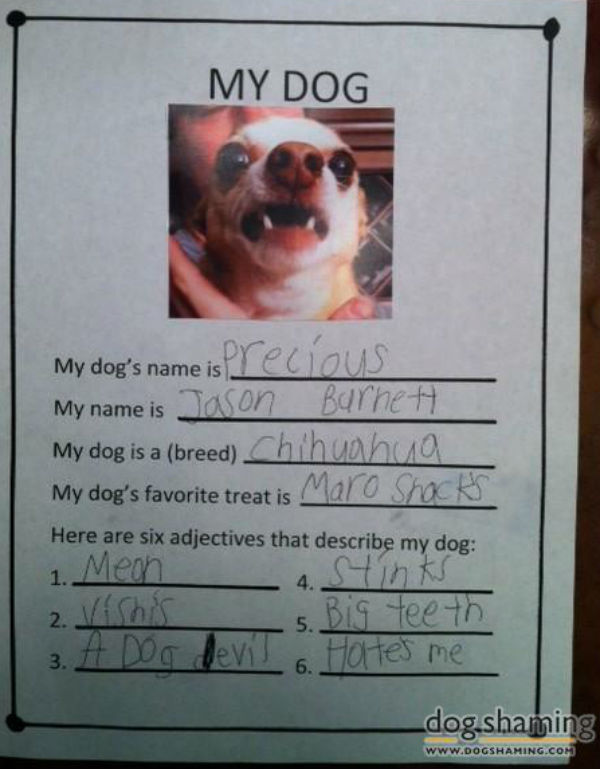 MY DOG
My dog's name is Precious
My name is Jason Barnett
My dog is a (breed) chihuahua
My dog's favorite treat is Maro Snacks
Here are six adjectives that describe my dog:
1. Mean
2. Vishis
3. A Dog devil
4. Stinks
5. Big teeth
6. Hates me
dog shaming
WWW.DOGSHAMING.COM